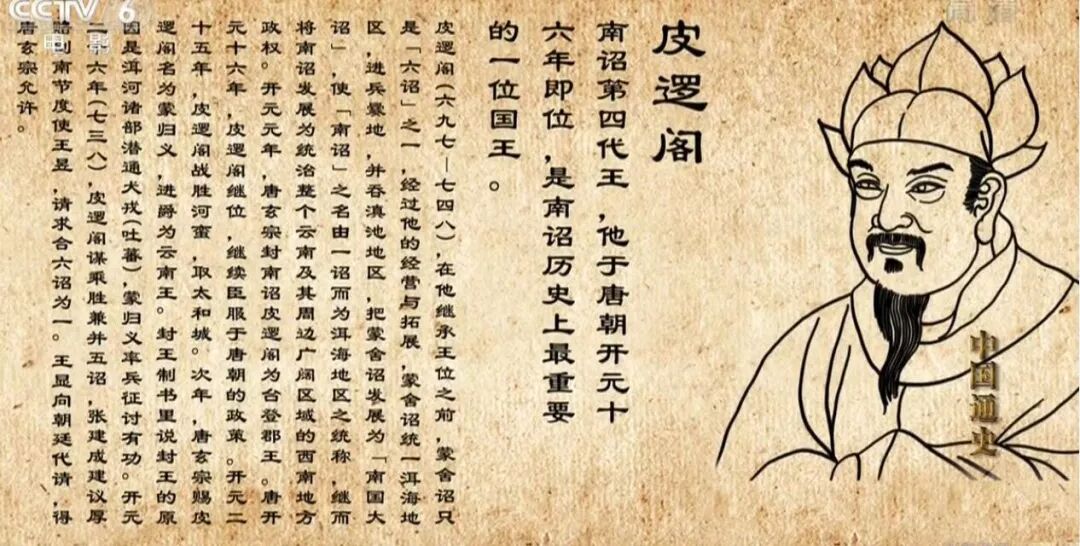 皮逻阁
南诏第四代王，他于唐朝开元十
六年即位，是南诏历史上最重要
的一位国王。
皮逻阁(六九七—七四八)，在他继承王位之前，蒙舍诏只
是「六诏」之一，经过他的经营与拓展，蒙舍诏统一洱海地
区，进兵爨地，并吞滇池地区，把蒙舍诏发展为「南国大
诏」，使「南诏」之名由一诏而为洱海地区之统称，继而
将南诏发展为统治整个云南及其周边广阔区域的西南地方
政权。开元元年，唐玄宗封南诏皮逻阁为台登郡王。唐开
元十六年，皮逻阁继位，继续臣服于唐朝的政策。开元二
十五年，皮逻阁战胜河蛮，取太和城。次年，唐玄宗赐皮
逻阁名为蒙归义，进爵为云南王。封王制书里说封王的原
因是洱河诸部潜通犬戎(吐蕃)，蒙归义率兵征讨有功。开元
二十六年(七三八)，皮逻阁谋乘胜兼并五诏，张建成建议厚
赂剑南节度使王昱，请求合六诏为一。王显向朝廷代请，得
唐玄宗允许。
中国通史
CCTV 6
电影
高清